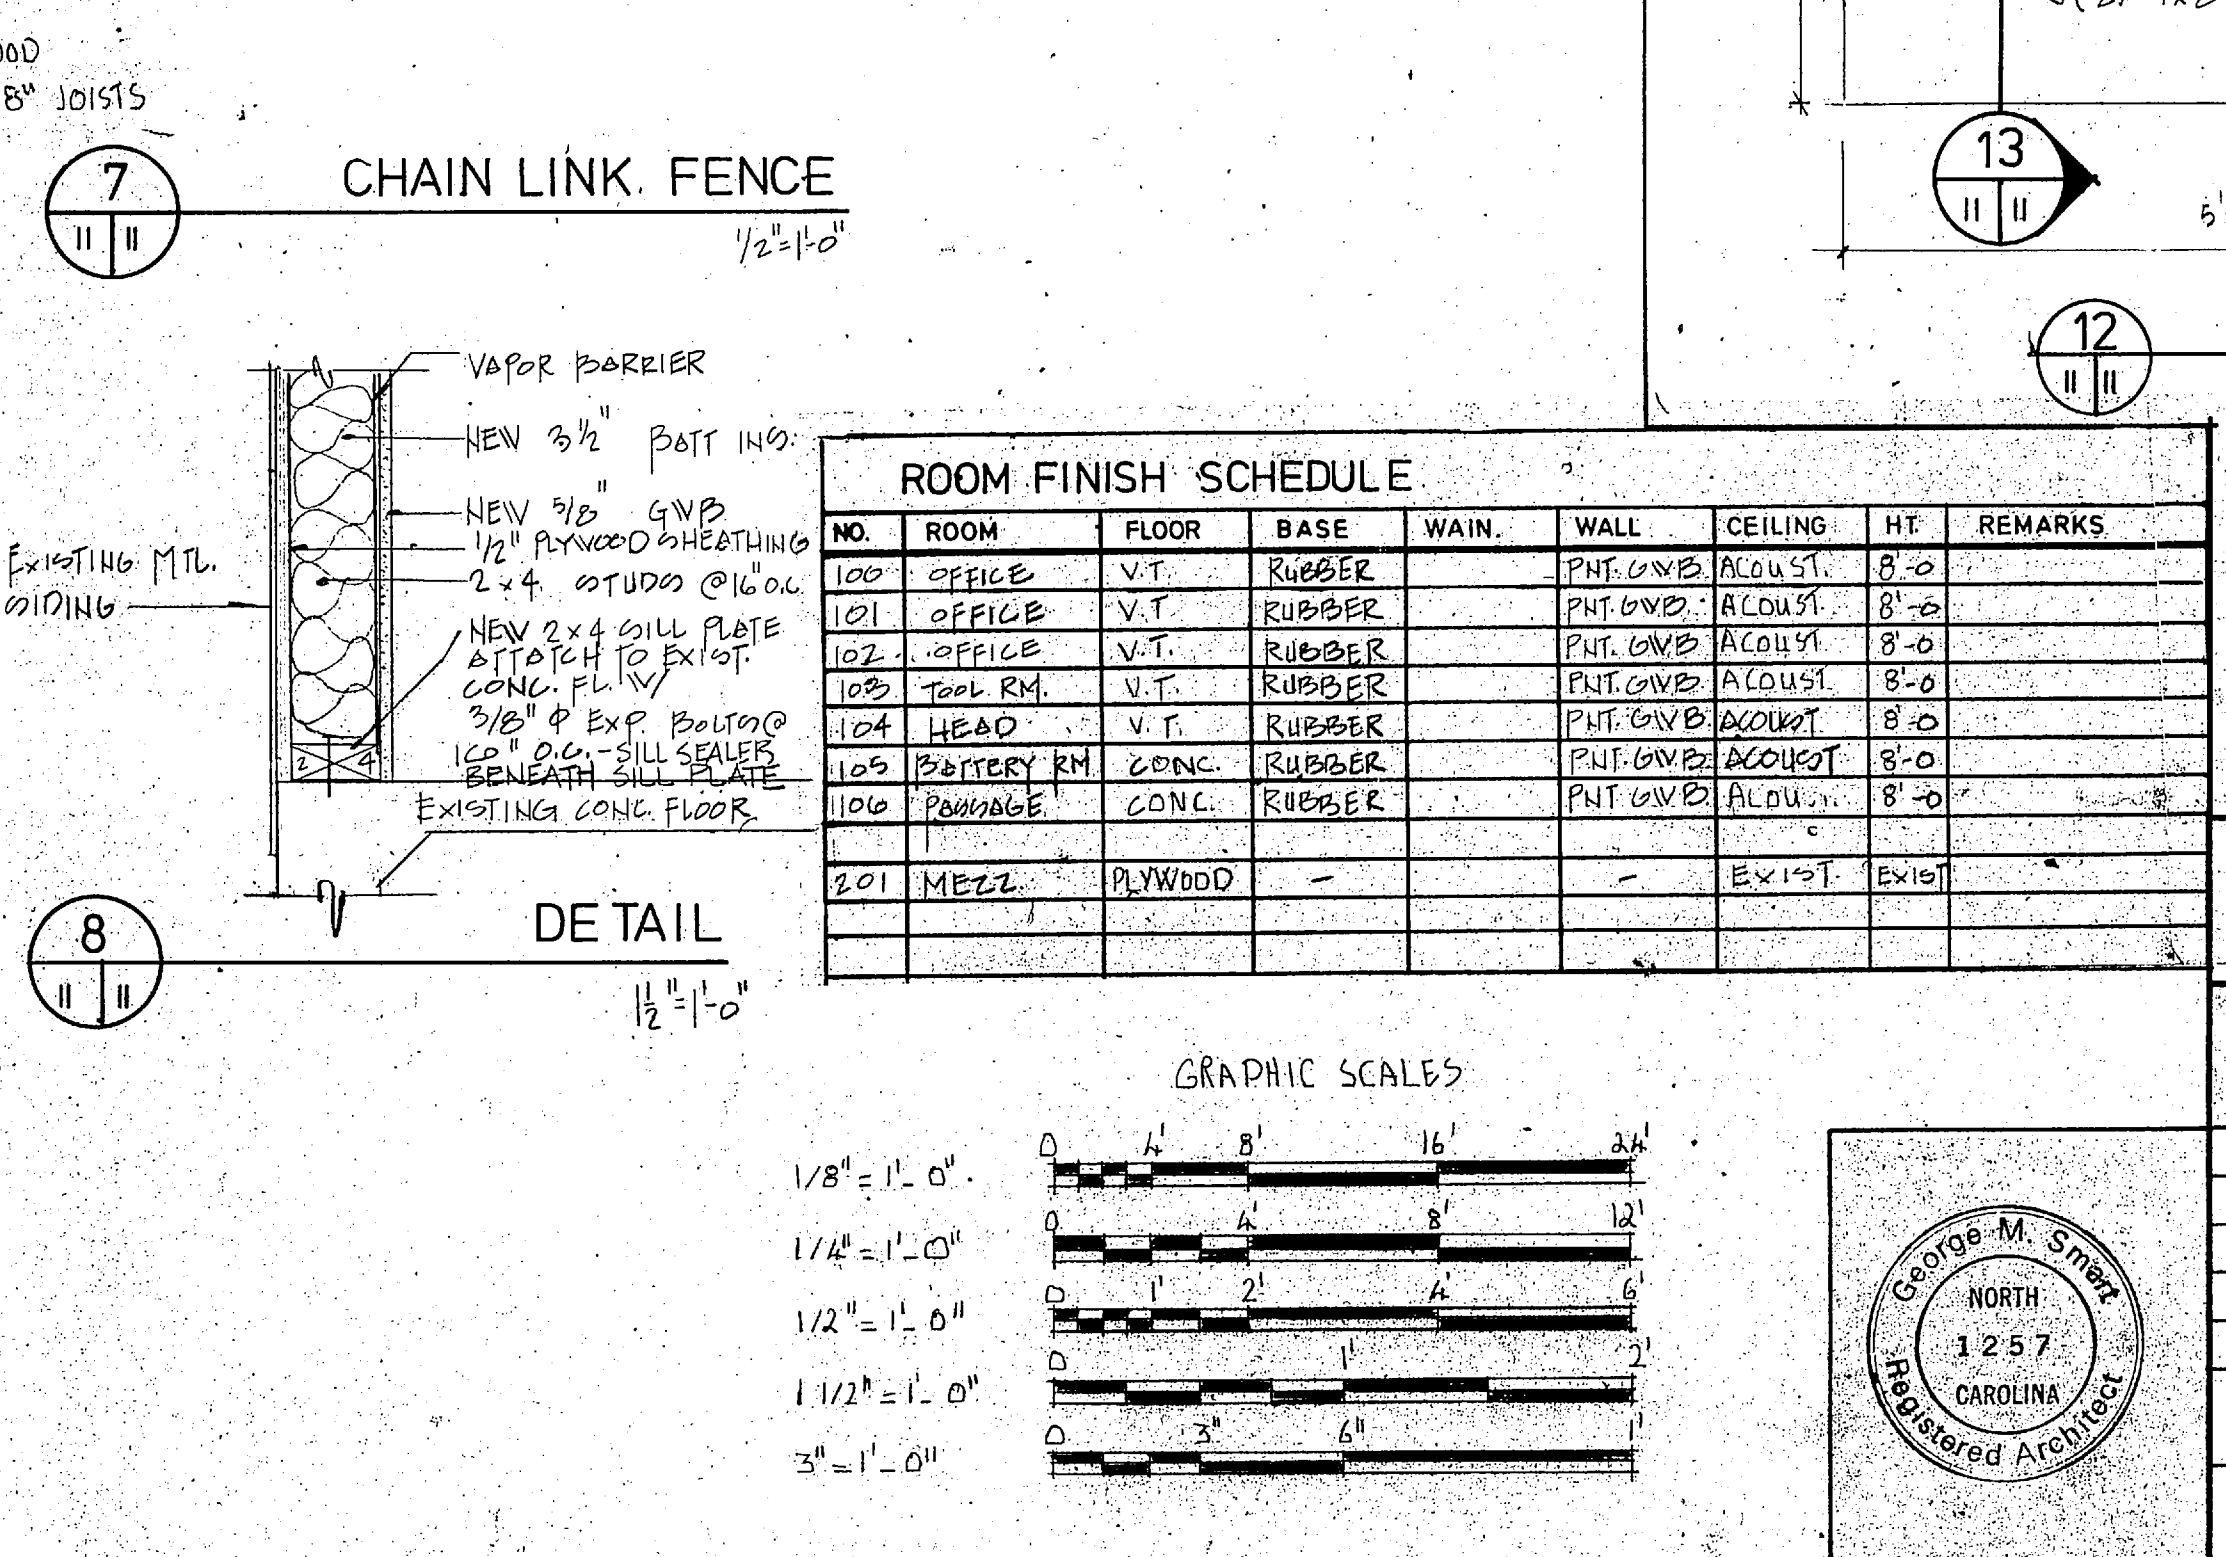 8" JOISTS
7
11 11
CHAIN LINK FENCE
1/2"=1'-0"
13
11 11
5'
12
11 11
VAPOR BARRIER
NEW 3 1/2" BATT INS.
NEW 5/8" GWB
1/2" PLYWOOD SHEATHING
2x4 STUDS @ 16" O.C.
EXISTING MTL.
SIDING
NEW 2x4 SILL PLATE
ATTATCH TO EXIST.
CONC. FL. W/
3/8" Φ EXP. BOLTS @
16" O.C. - SILL SEALER
BENEATH SILL PLATE
2 4
EXISTING CONC. FLOOR
8
11 11
DETAIL
1 1/2"=1'-0"
ROOM FINISH SCHEDULE
NO. ROOM FLOOR BASE WAIN. WALL CEILING HT. REMARKS
100 OFFICE V.T. RUBBER PNT. GWB ACOUST. 8'-0
101 OFFICE V.T. RUBBER PNT. GWB ACOUST. 8'-0
102 OFFICE V.T. RUBBER PNT. GWB ACOUST 8'-0
103 TOOL RM. V.T. RUBBER PNT. GWB ACOUST 8'-0
104 HEAD V.T. RUBBER PNT. GWB ACOUST 8'-0
105 BATTERY RM CONC. RUBBER PNT. GWB ACOUST 8'-0
106 PASSAGE CONC. RUBBER PNT GWB 8'-0
201 MEZZ. PLYWOOD - - EXIST. EXIST
GRAPHIC SCALES
1/8" = 1'-0" 0 4' 8' 16' 24'
1/4" = 1'-0" 0 4' 8' 12'
1/2" = 1'-0" 0 1' 2' 4' 6'
1 1/2" = 1'-0" 0 1' 2'
3" = 1'-0" 0 3" 6" 1'
George M. Smart
NORTH
1257
CAROLINA
Registered Architect